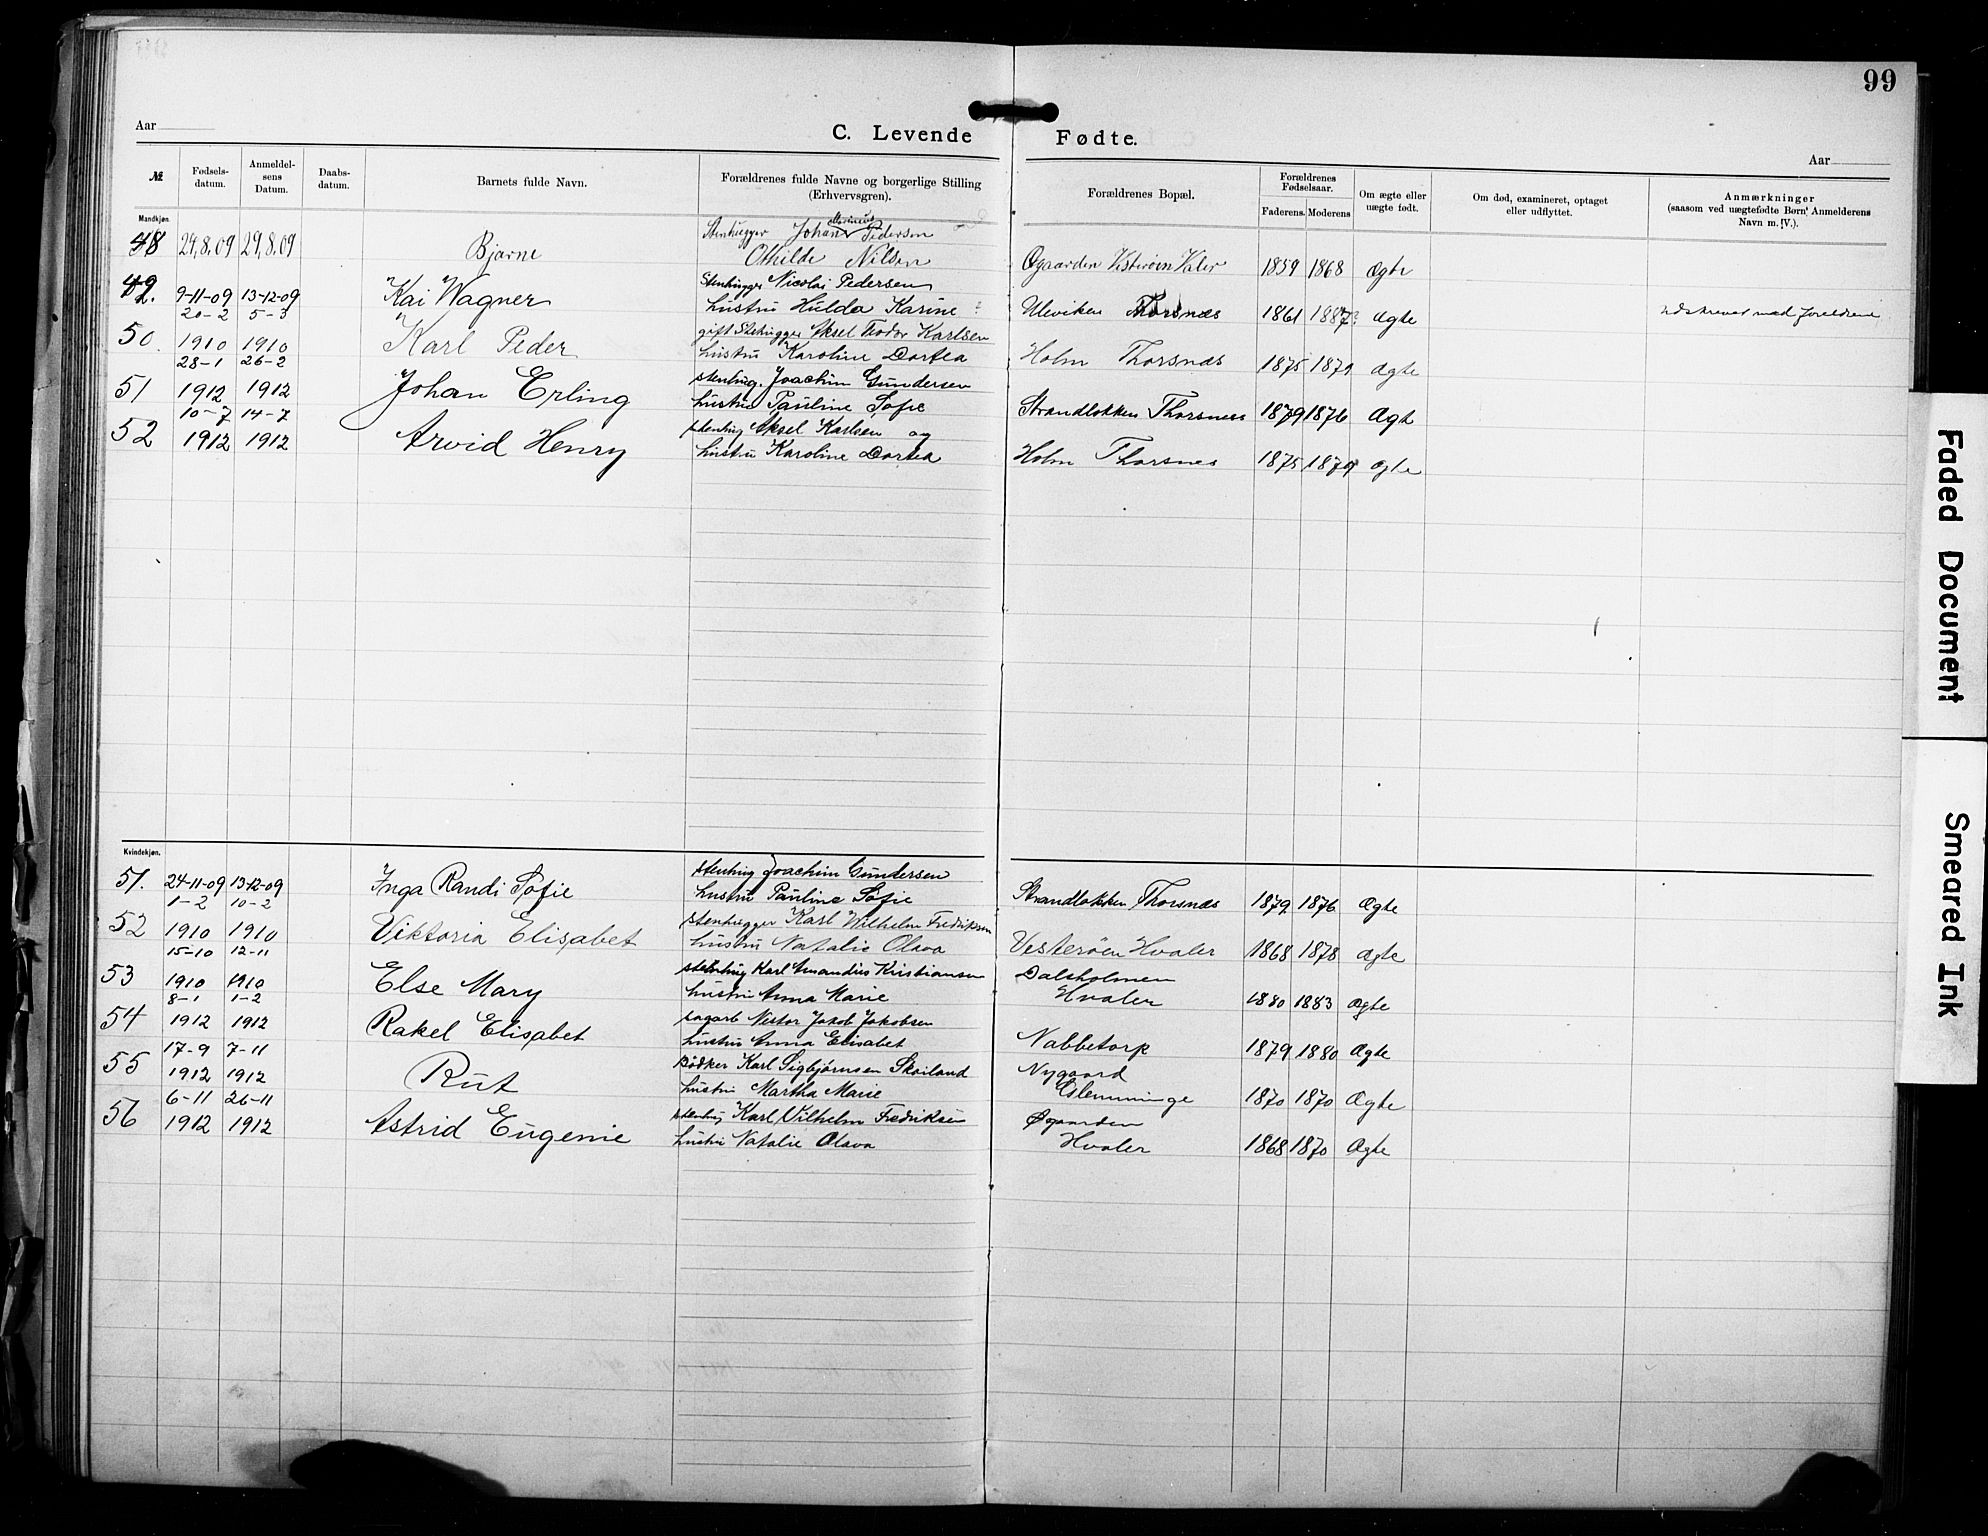 99
Aar
C. Levende Fødte.
Aar
№
Fødsels-datum.
Anmeldel-sens Datum.
Daabs-datum.
Barnets fulde Navn.
Forældrenes fulde Navne og borgerlige Stilling (Erhvervsgren).
Forældrenes Bopæl.
Forældrenes Fødselsaar.
Faderens. Moderens
Om ægte eller uægte født.
Om død, examineret, optaget eller udflyttet.
Anmærkninger
(saasom ved uægtefødte Børn Anmelderens Navn m. V.).
Mandkjøn.
48 24,8.09 29,8.09 Bjarne Stenhugger Johan Marinius Pedersen
Othilde Nilsen Øgaarden 1859 1868 Ægte
49. 9-11-09 13-12-09 Kai Wagner Stenhugger Nicolai Pedersen
hustru Hulda Karine Uleviken Thorsnæs 1861 1887? Ægte
20-2 5-3
50. 1910 1910 Karl Peder gift Stehugger Aksel Teodor Karlsen
hustru Karoline Dortea Holm Thorsnæs 1875 1879 Ægte
28-1 26-2
51 1912 1912 Johan Erling stenhug. Joachim Gundersen
hustru Pauline Sofie Strandløkken Thorsnæs 1879 1876 Ægte
10-7 14-7
52 1912 1912 Arvid Henry stenhug Aksel Karlsen og
hustru Karoline Dortea Holm Thorsnes 1875 1879 Ægte
Kvindekjøn.
51. 24-11-09 13-12-09 Inga Randi Sofie stenhug Joachim Gundersen
hustru Pauline Sofie Strandløkken Thorsnæs 1879 1876 Ægte
1-2 10-2
52 1910 1910 Viktoria Elisabet stenhugger Karl Wilhelm Fredriksen
hustru Natalie Olava Vesterøen Hvaler 1868 1878 Ægte
15-10 12-11
53 1910 1910 Else Mary stenhug Karl Amandius Kristiansen
hustru Anna Marie Dalsholmen Hvaler 1880 1883 Ægte
8-1 1-2
54 1912 1912 Rakel Elisabet sagarb Nestor Jakob Jakobsen
hustru Anna Elisabet Nabbetorp 1879 1880 Ægte
17-9 7-11
55 1912 1912 Rut Bødker Karl Sigbjørnsen Skailand
hustru Martha Marie Nygaard Glemminge 1870 1870 Ægte
6-11 26-11
56 1912 1912 Astrid Eugenie stenhug Karl Vilhelm Fredriksen
hustru Natalie Olava Øgaarden Hvaler 1868 1870 Ægte
Faded Document
Smeared Ink